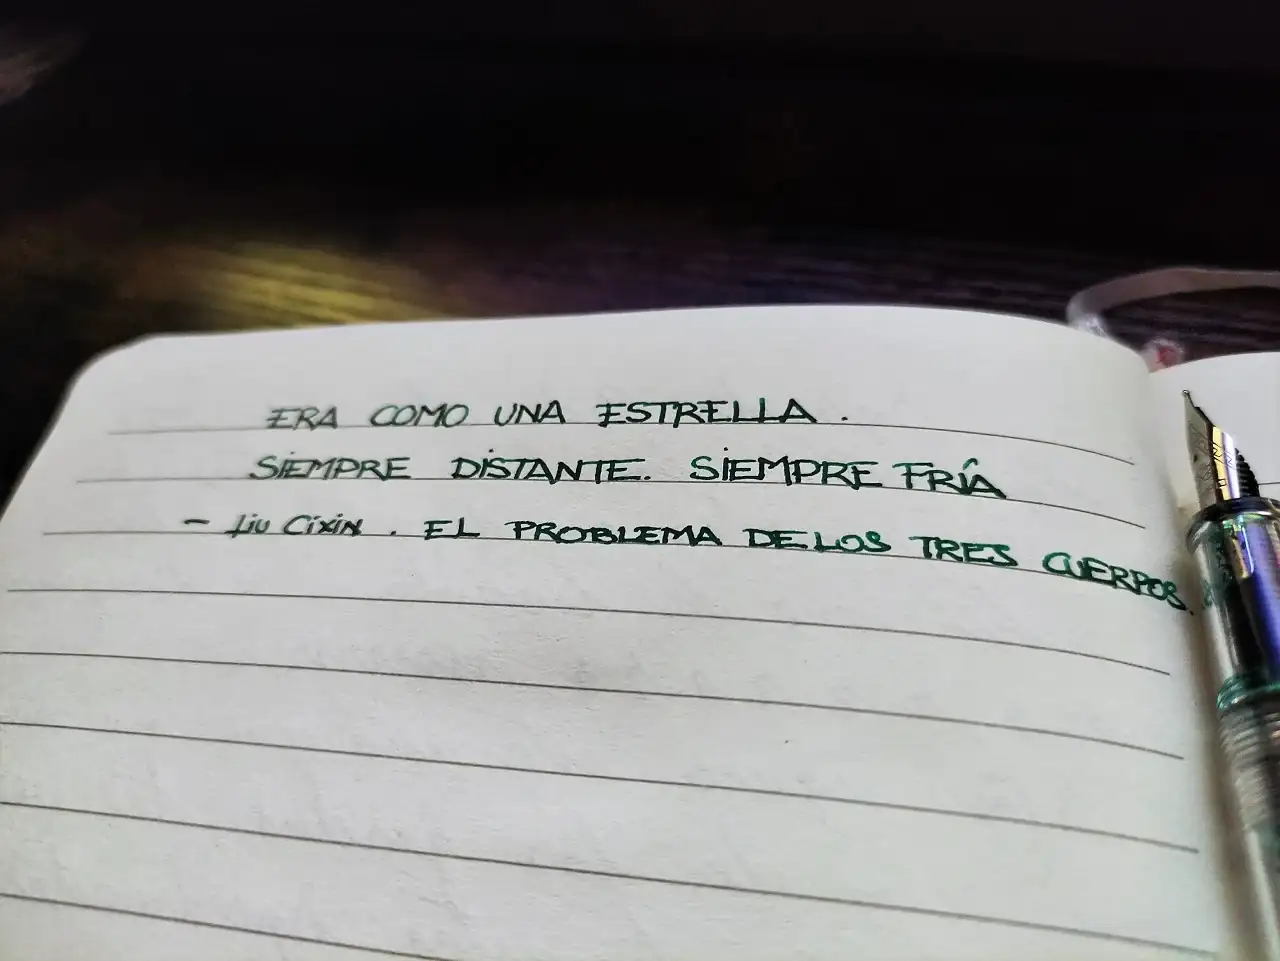 ERA COMO UNA ESTRELLA.
SIEMPRE DISTANTE. SIEMPRE FRÍA
- Liu Cixin. EL PROBLEMA DE LOS TRES CUERPOS.